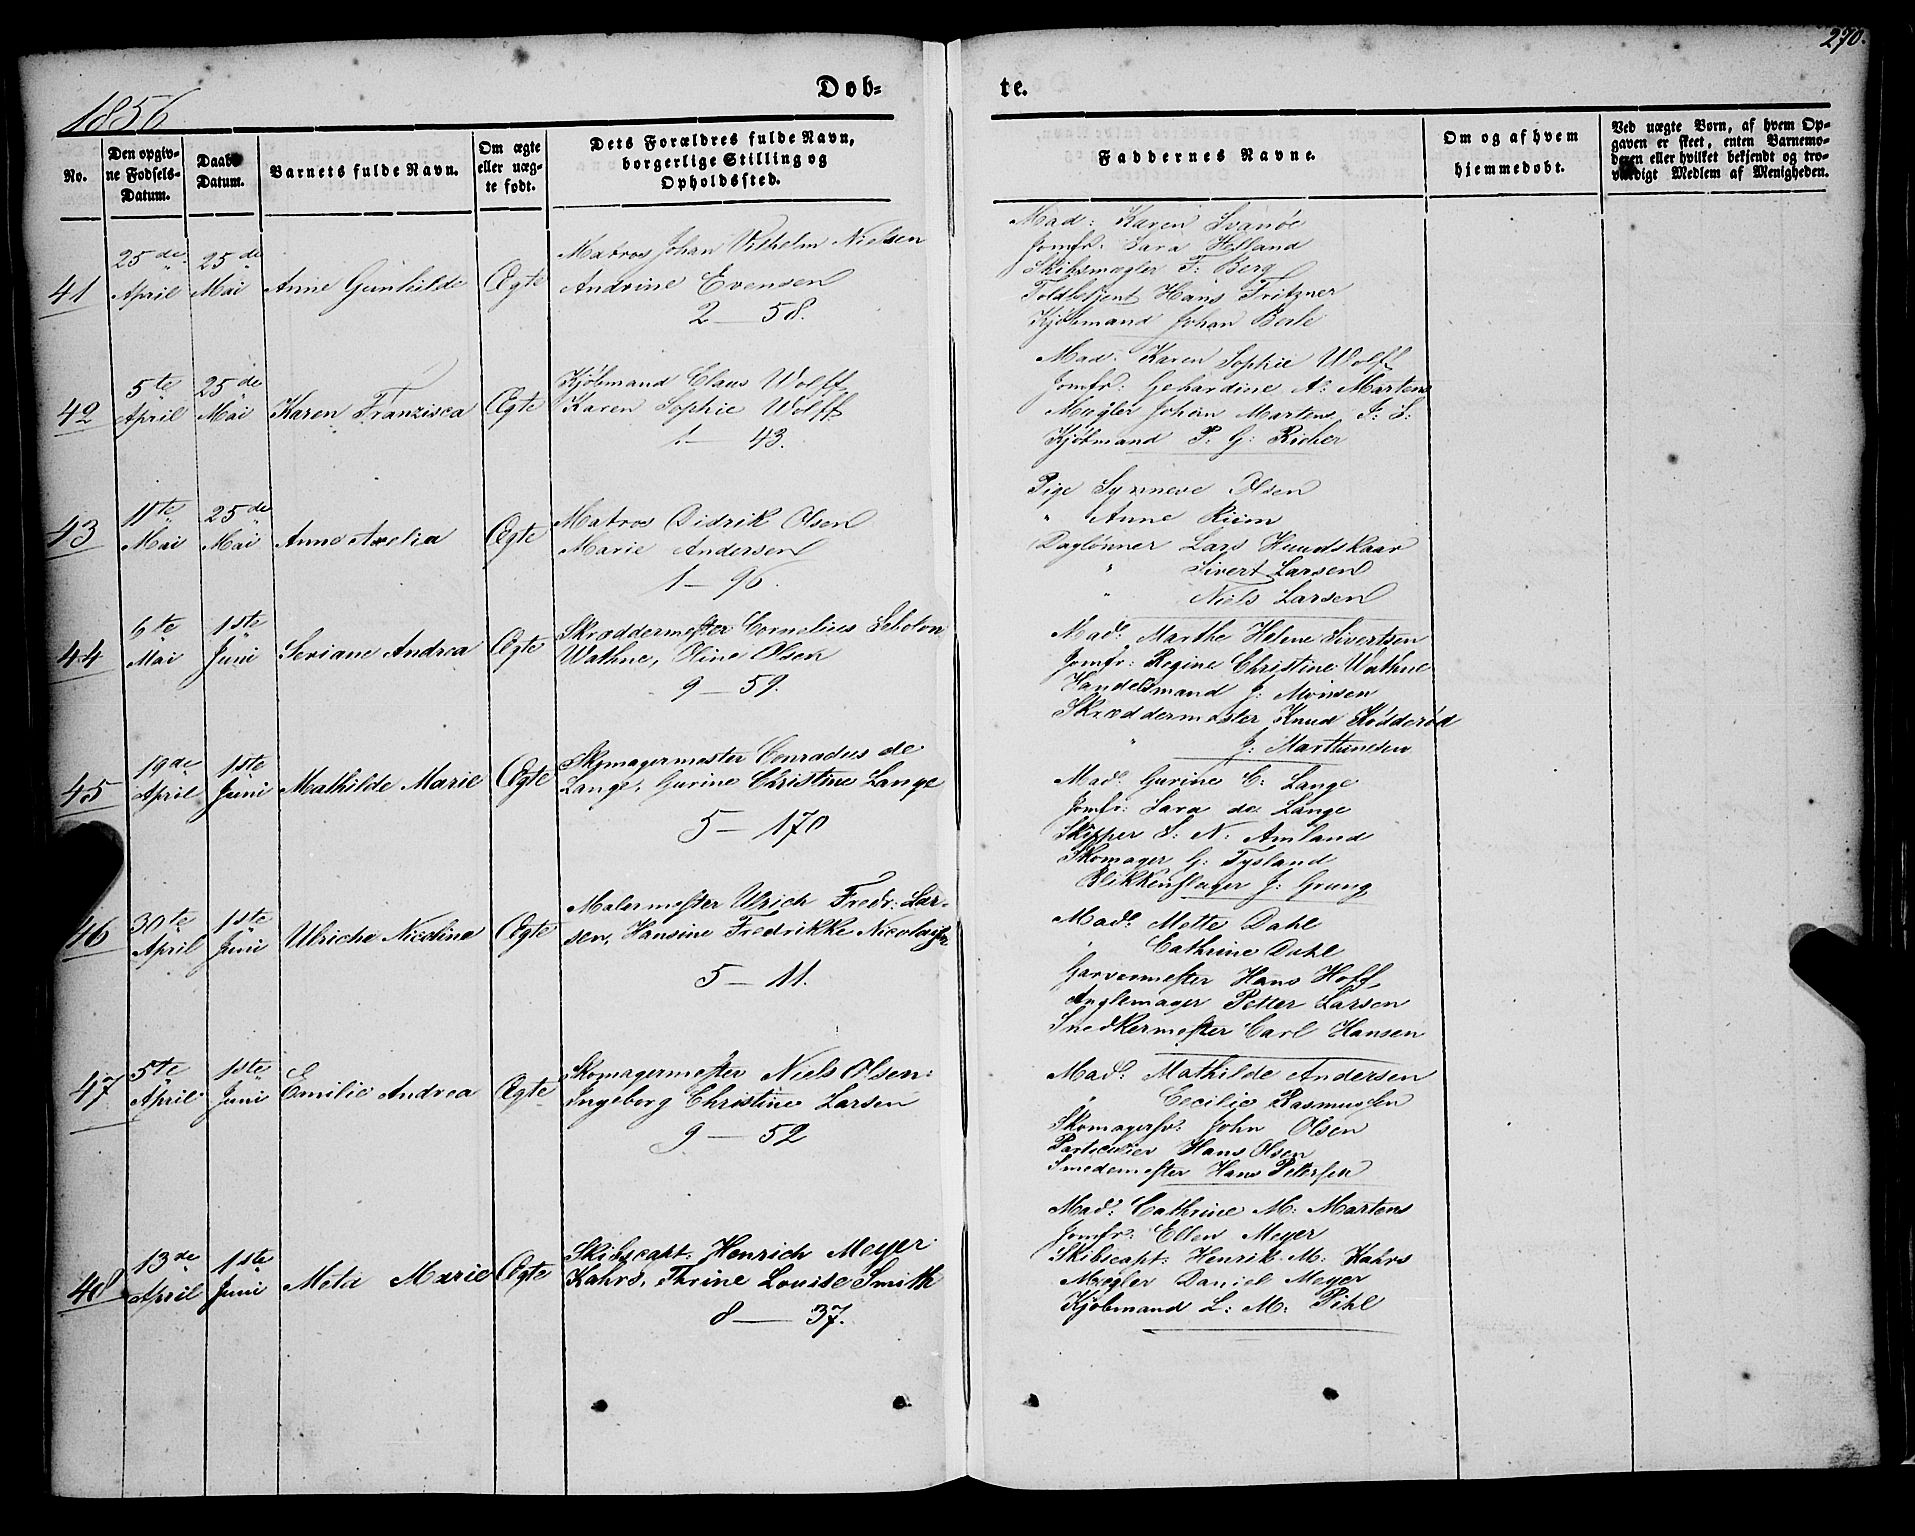 270.
1856
Døb=
te.
No.
Den opgiv=
ne Fødsels=
Datum.
Daabs
Datum.
Barnets fulde Navn.
Om ægte
eller uæg=
te født.
Dets Forældres fulde Navn,
borgerlige Stilling og
Opholdssted.
Faddernes Navne.
Om og af hvem
hjemmedøbt.
Ved uægte Børn, af hvem Op=
gaven er skeet, enten Barnemo=
deren eller hvilket bekjendt og tro=
værdigt Medlem af Menigheden.
41
25de
April
25de
Mai
Anne Gunhilde
Ægte
Matros Johan Vilhelm Nielsen
Andrine Evensen
2 — 58.
Mad: Karen Svanöe
Jomfr: Sara Helland
Skibsmægler F: Berg
Toldbetjent Hans Fritzner
Kjöbmand Johan Berle
42
5te
April
25de
Mai
Karen Franzisca
Ægte
Kjöbmand Claus Wolff
Karen Sophie Wolff
1 — 43.
Mad: Karen Sophie Wolff
Jomfr: Gehardine A: Martens
Mægler Johan Martens J: S:
Kjöbmand P: G: Richer
43
11te
Mai
25de
Mai
Anne Axelia
Ægte
Matros Didrik Olsen
Marie Andersen
1 — 96.
Pige Synneve Olsen
" Anne Riim
Daglönner Lars Hundskaar
" Sivert Larsen
" Niels Larsen
44
6te
Mai
1ste
Juni
Seriane Andrea
Ægte
Skræddermester Cornelius Scholvn
Wathne, Oline Olsen
9 — 59.
Mad: Marthe Helene Sivertsen
Jomfr: Regine Christine Wathne
Handelsmand J: Monsen
Skræddermester Knud Ködderöd
" J: Marthinesen
45
19de
April
1ste
Juni
Mathilde Marie
Ægte
Skomagermester Conradus de
Lange, Gurine Christine Lange
5 — 170
Mad: Gurine C: Lange
Jomfr: Sara de Lange
Skipper S: N: Amland
Skomager G: Tysland
Blikkenslager J: Grung
46
30te
April
1ste
Juni
Ulriche Nicoline
Ægte
Malermester Ulrich Fredr: Lar-
sen, Hansine Fredrikke Nicolaysen
5 — 11.
Mad: Mette Dahl
" Cathrine Dahl
Garvermester Hans Hoff
Anglemager Petter Larsen
Snedkermester Carl Hansen
47
5te
April
1ste
Juni
Emilie Andrea
Ægte
Skomagermester Niels Olsen:
Ingeborg Christine Larsen
9 — 52
Mad: Mathilde Andersen
" Cecilie Rasmussen
Skomagersv: John Olsen
Particulier Hans Olsen
Smedemester Hans Pettersen
48
13de
April
1ste
Juni
Meta Marie
Ægte
Skibscapt: Henrich Meyer
Kahrs, Thrine Louise Smith
8 — 37.
Mad: Cathrine M: Martens
Jomfr: Ellen Meyer
Skibscapt: Henrik M: Kahrs
Mægler Daniel Meyer
Kjöbmand L: M: Pihl